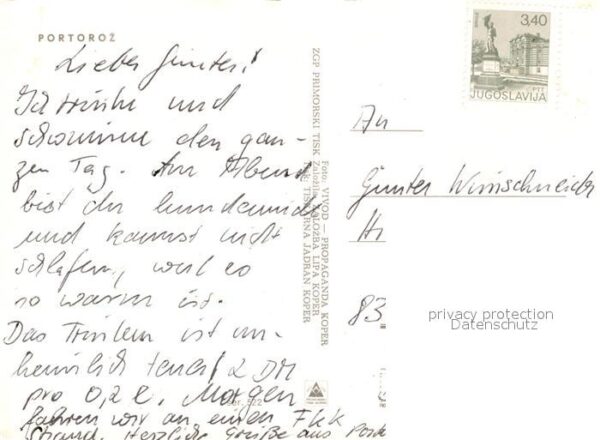 PORTOROŽ
Lieber Günter!
Ich trinke und
schwimme den gan-
zen Tag. Am Abend
bist du hundemüde
und kannst nicht
schlafen, weil es
so warm ist.
Das Trinken ist un-
heimlich teuer! 2 DM
pro 0,2 l. Morgen
fahren wir an einen FKK
Strand. Herzliche Grüße aus
ZGP PRIMORSKI TISK Založila ZALOŽBA LIPA KOPER
Foto: VIVOD — PROPAGANDA KOPER
Tisk: TISKARNA JADRAN KOPER
522
3,40
JUGOSLAVIJA
An
Günter
83
privacy protection
Datenschutz